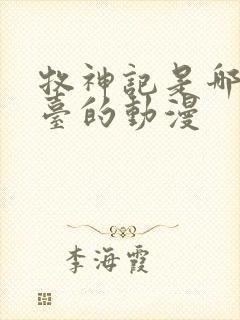 牧神記是哪
臺的動漫
李海霞